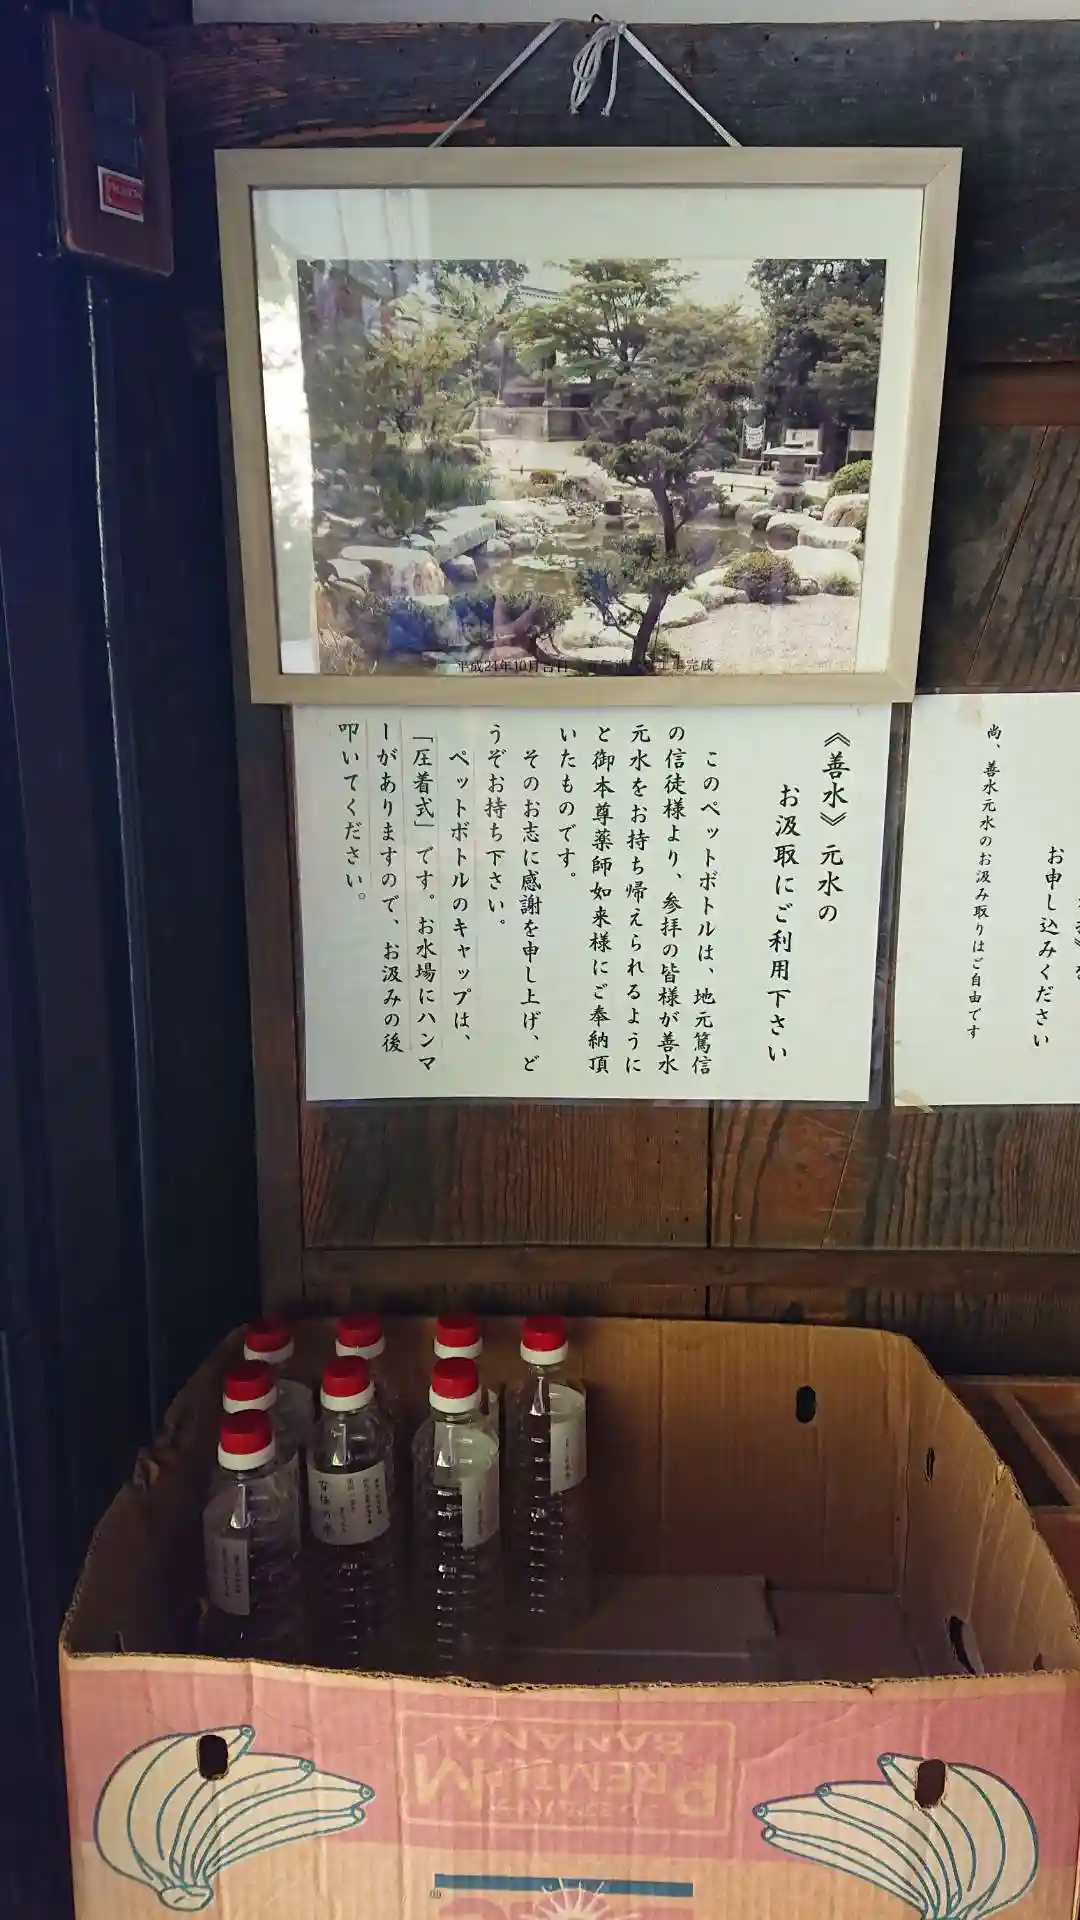 平成24年10月吉日
工事完成
《善水》元水の
お汲取にご利用下さい
このペットボトルは、地元篤信
の信徒様より、参拝の皆様が善水
元水をお持ち帰えられるように
と御本尊薬師如来様にご奉納頂
いたものです。
そのお志に感謝を申し上げ、ど
うぞお持ち下さい。
ペットボトルのキャップは、
「圧着式」です。お水場にハンマ
ーがありますので、お汲みの後
叩いてください。
お申し込みください
尚、善水元水のお汲み取りはご自由です
PREMIUM
BANANA